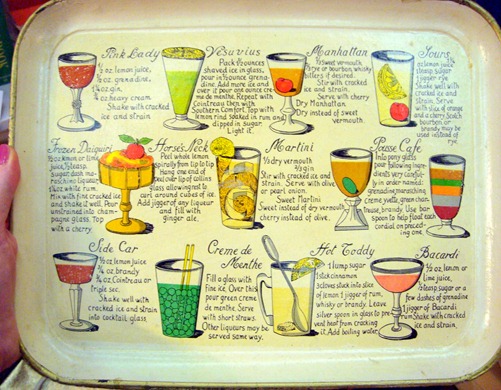 Pink Lady
½ oz lemon juice,
½ oz. grenadine,
1½ oz. gin,
¾ oz. heavy cream.
Shake with cracked
ice and strain
Vesuvius
Pack 9 ounces
shaved ice in glass,
pour in ½ ounce grena-
dine. Add more ice and
over it pour one ounce cre-
me de menthe. Repeat with
Cointreau then with
Southern Comfort. Top with
lemon rind soaked in rum and
dipped in sugar.
Light it.
Manhattan
sweet vermouth
rye or bourbon whisky
bitters if desired.
Stir with cracked ice
and strain.
Serve with cherry
Dry Manhattan
Dry instead of sweet
vermouth.
Sours
oz lemon juice
1 teasp sugar
1 jigger rye
Shake well with
cracked ice and
strain. Serve
with slice of orange
and a cherry. Scotch
bourbon or
brandy may be
used instead of
rye.
Frozen Daiquiri
½ oz lemon or lime
juice, ½ teasp.
sugar, dash ma-
raschino liqueur
white rum.
Mix with fine cracked ice
and shake it well. Pour
unstrained into cham-
pagne glass. Top
with a cherry.
Horse's Neck
Peel whole lemon
spirally from tip to tip
Hang one end of
peel over lip of Collins
glass allowing it to
curl around cubes of ice.
Add jigger of any liqueur
and fill with
ginger ale.
Martini
½ dry vermouth
gin
Stir with cracked ice and
strain. Serve with olive
or pearl onion.
Sweet Martini
Sweet instead of dry vermouth,
cherry instead of olive.
Pousse Cafe
Into pony glass
pour following ingre-
dients very careful-
ly in order named:
grenadine, maraschino,
creme yvette, green char-
treuse, brandy. Use bar
spoon to help float each
cordial on preced-
ing one.
Side Car
½ oz lemon juice
¾ oz. brandy
¾ oz. Cointreau or
triple sec.
Shake well with
cracked ice and strain
into cocktail glass.
Creme de
Menthe
Fill a glass with
fine ice. Over this
pour green creme
de menthe. Serve
with short straws.
Other liqueurs may be
served same way.
Hot Toddy
1 lump sugar
1 stick cinnamon
cloves stuck into slice
of lemon, 1 jigger of rum,
whisky or brandy. Leave
silver spoon in glass to pre-
vent heat from cracking
it. Add boiling water.
Bacardi
½ oz. lemon or
lime juice,
½ teasp sugar or a
few dashes of grenadine
1 jigger of Bacardi
rum. Shake with cracked
ice and strain.